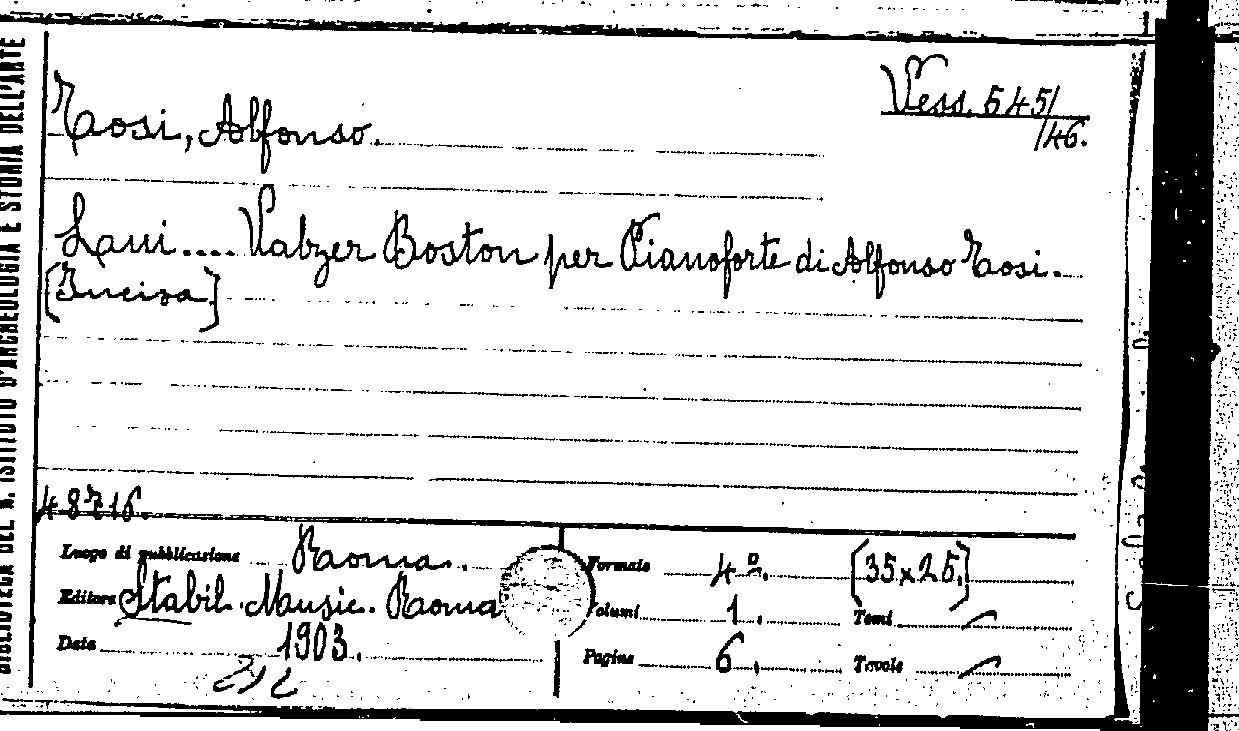 BIBLIOTECA DEL R. ISTITUTO D'ARCHEOLOGIA E STORIA DELL'ARTE
Vess. 545/
/46.
Tosi, Alfonso.
Lani.... Valzer Boston per Pianoforte di Alfonso Tosi.
[Incisa]
48716.
Luogo di pubblicazione Roma.
Formato 4º. [35x25.]
Editore Stabil. Music. Roma
Volumi 1. Tomi
Data 1903.
Pagine 6. Tavole